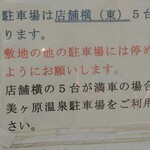 駐車場は店舗横（東）５台
ります。
敷地の他の駐車場には停め
ようにお願いします。
店舗横の５台が満車の場合
美ヶ原温泉駐車場をご利用
さい。